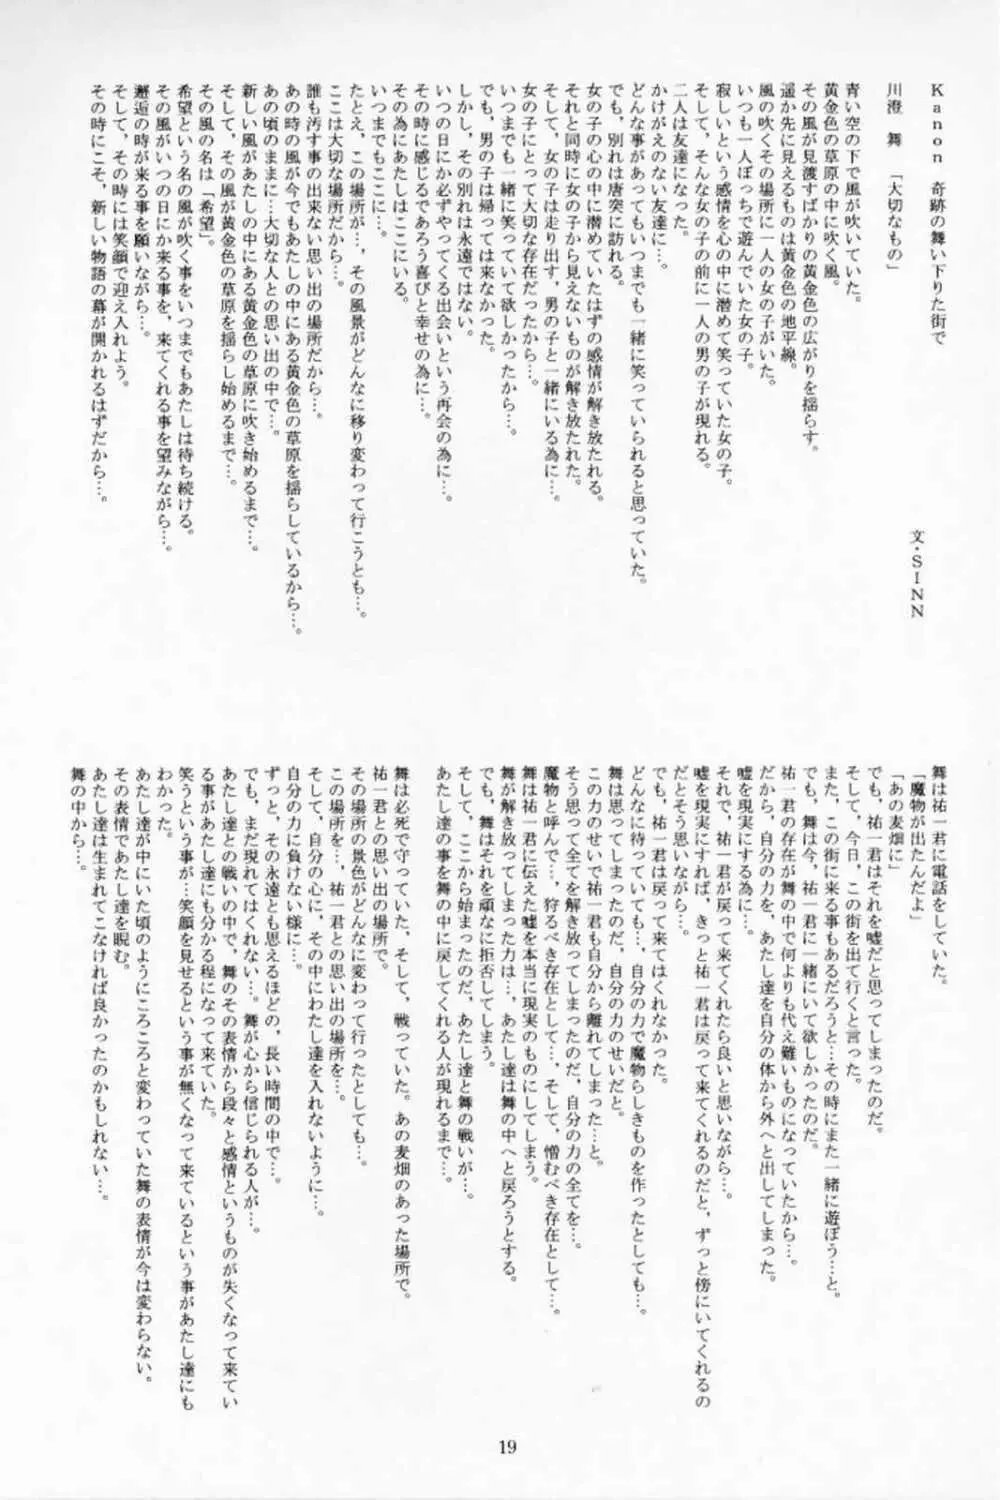 Kanon 奇跡の舞い下りた街で
川澄 舞 「大切なもの」
文・SINN
青い空の下で風が吹いていた。
黄金色の草原の中に吹く風。
その風が見渡すばかりの黄金色の広がりを揺らす。
遥か先に見えるものは黄金色の地平線。
風の吹くその場所に一人の女の子がいた。
いつも一人ぼっちで遊んでいた女の子。
寂しいという感情を心の中に潜めて笑っていた女の子。
そして、そんな女の子の前に一人の男の子が現れる。
二人は友達になった。
かけがえのない友達に…。
どんな事があってもいつまでも一緒に笑っていられると思っていた。
でも、別れは唐突に訪れる。
女の子の心の中に潜めていたはずの感情が解き放たれる。
それと同時に女の子から見えないものが解き放たれた。
そして、女の子は走り出す、男の子と一緒にいる為に…。
女の子にとって大切な存在だったから…。
いつまでも一緒に笑っていて欲しかったから…。
でも、男の子は帰っては来なかった。
しかし、その別れは永遠ではない。
いつの日にか必ずやってくる出会いという再会の為に…。
その時に感じるであろう喜びと幸せの為に…。
その為にあたしはここにいる。
いつまでもここに…。
たとえ、この場所が…、その風景がどんなに移り変わって行こうとも…。
ここは大切な場所だから…。
誰も汚す事の出来ない思い出の場所だから…。
あの時の風が今でもあたしの中にある黄金色の草原を揺らしているから…。
あの頃のままに…大切な人との思い出の中で…。
新しい風があたしの中にある黄金色の草原に吹き始めるまで…。
そして、その風が黄金色の草原を揺らし始めるまで…。
その風の名は「希望」。
希望という名の風が吹く事をいつまでもあたしは待ち続ける。
その風がいつの日にか来る事を、来てくれる事を望みながら…。
邂逅の時が来る事を願いながら…。
そして、その時には笑顔で迎え入れよう。
その時にこそ、新しい物語の幕が開かれるはずだから…。
舞は祐一君に電話をしていた。
「魔物が出たんだよ」
「あの麦畑に」
でも、祐一君はそれを嘘だと思ってしまったのだ。
そして、今日、この街を出て行くと言った。
また、この街に来る事もあるだろうと…その時にまた一緒に遊ぼう…と。
でも、舞は今、祐一君に一緒にいて欲しかったのだ。
祐一君の存在が舞の中で何よりも代え難いものになっていたから…。
だから、自分の力を、あたし達を自分の体から外へと出してしまった。
嘘を現実にする為に…。
それで、祐一君が戻って来てくれたら良いと思いながら…。
嘘を現実にすれば、きっと祐一君は戻って来てくれるのだと、ずっと傍にいてくれるの
だとそう思いながら…。
でも、祐一君は戻って来てはくれなかった。
どんなに待っていても…、自分の力で魔物らしきものを作ったとしても…。
舞は思ってしまったのだ、自分の力のせいだと。
この力のせいで祐一君も自分から離れてしまった…と。
そう思って全てを解き放ってしまったのだ、自分の力の全てを…。
魔物と呼んで…、狩るべき存在として…、そして、憎むべき存在として…。
舞は祐一君に伝えた嘘を本当に現実のものにしてしまう。
舞が解き放ってしまった力は…、あたし達は舞の中へと戻ろうとする。
でも、舞はそれを頑なに拒否してしまう。
そして、ここから始まったのだ、あたし達と舞の戦いが…。
あたし達の事を舞の中に戻してくれる人が現れるまで…。
舞は必死で守っていた、そして、戦っていた。あの麦畑のあった場所で。
祐一君との思い出の場所で。
その場所の景色がどんなに変わって行ったとしても…。
この場所を…、祐一君との思い出の場所を…。
そして、自分の心に、その中にわたし達を入れないように…。
自分の力に負けない様に…。
ずっと、その永遠とも思えるほどの、長い時間の中で…。
でも、まだ現れてはくれない…。舞が心から信じられる人が…。
あたし達との戦いの中で、舞のその表情から段々と感情というものが失くなって来てい
る事があたし達にも分かる程になって来ていた。
笑うという事が…笑顔を見せるという事が無くなって来ているという事があたし達にも
わかった。
あたし達が中にいた頃のようにころころと変わっていた舞の表情が今は変わらない。
その表情であたし達を睨む。
あたし達は生まれてこなければ良かったのかもしれない…。
舞の中から…。
19